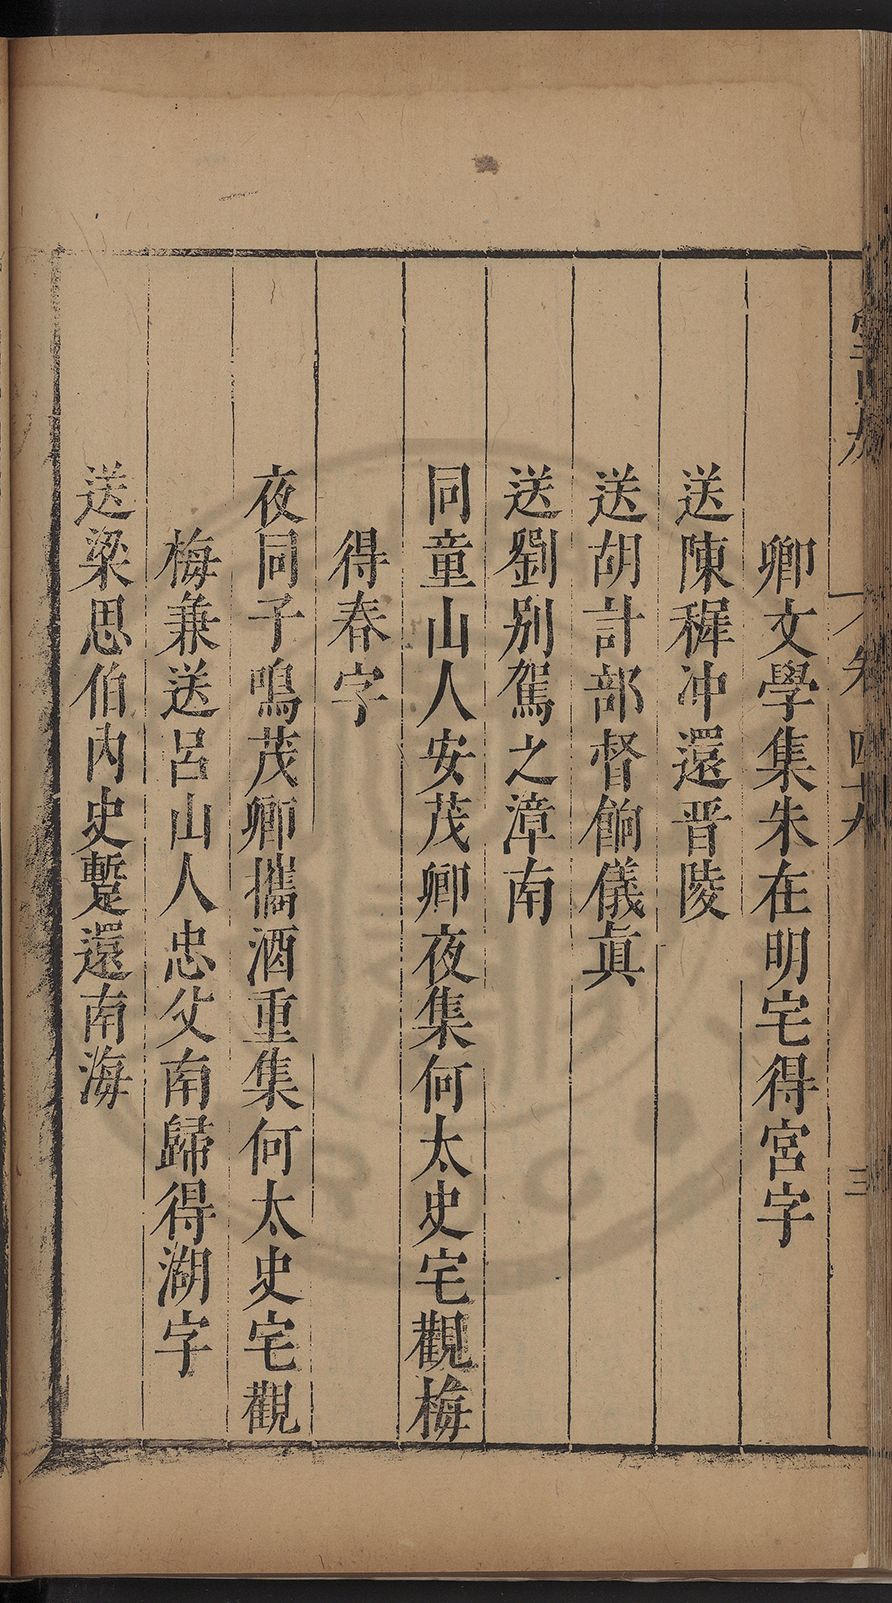 卿文學集朱在明宅得宮字
送陳穉冲還晋陵
送胡計部督餉儀眞
送劉别駕之漳南
同童山人安茂卿夜集何太史宅觀梅
得春字
夜同子鳴茂卿攜酒重集何太史宅觀
梅兼送呂山人忠父南歸得湖字
送梁思伯内史蹔還南海